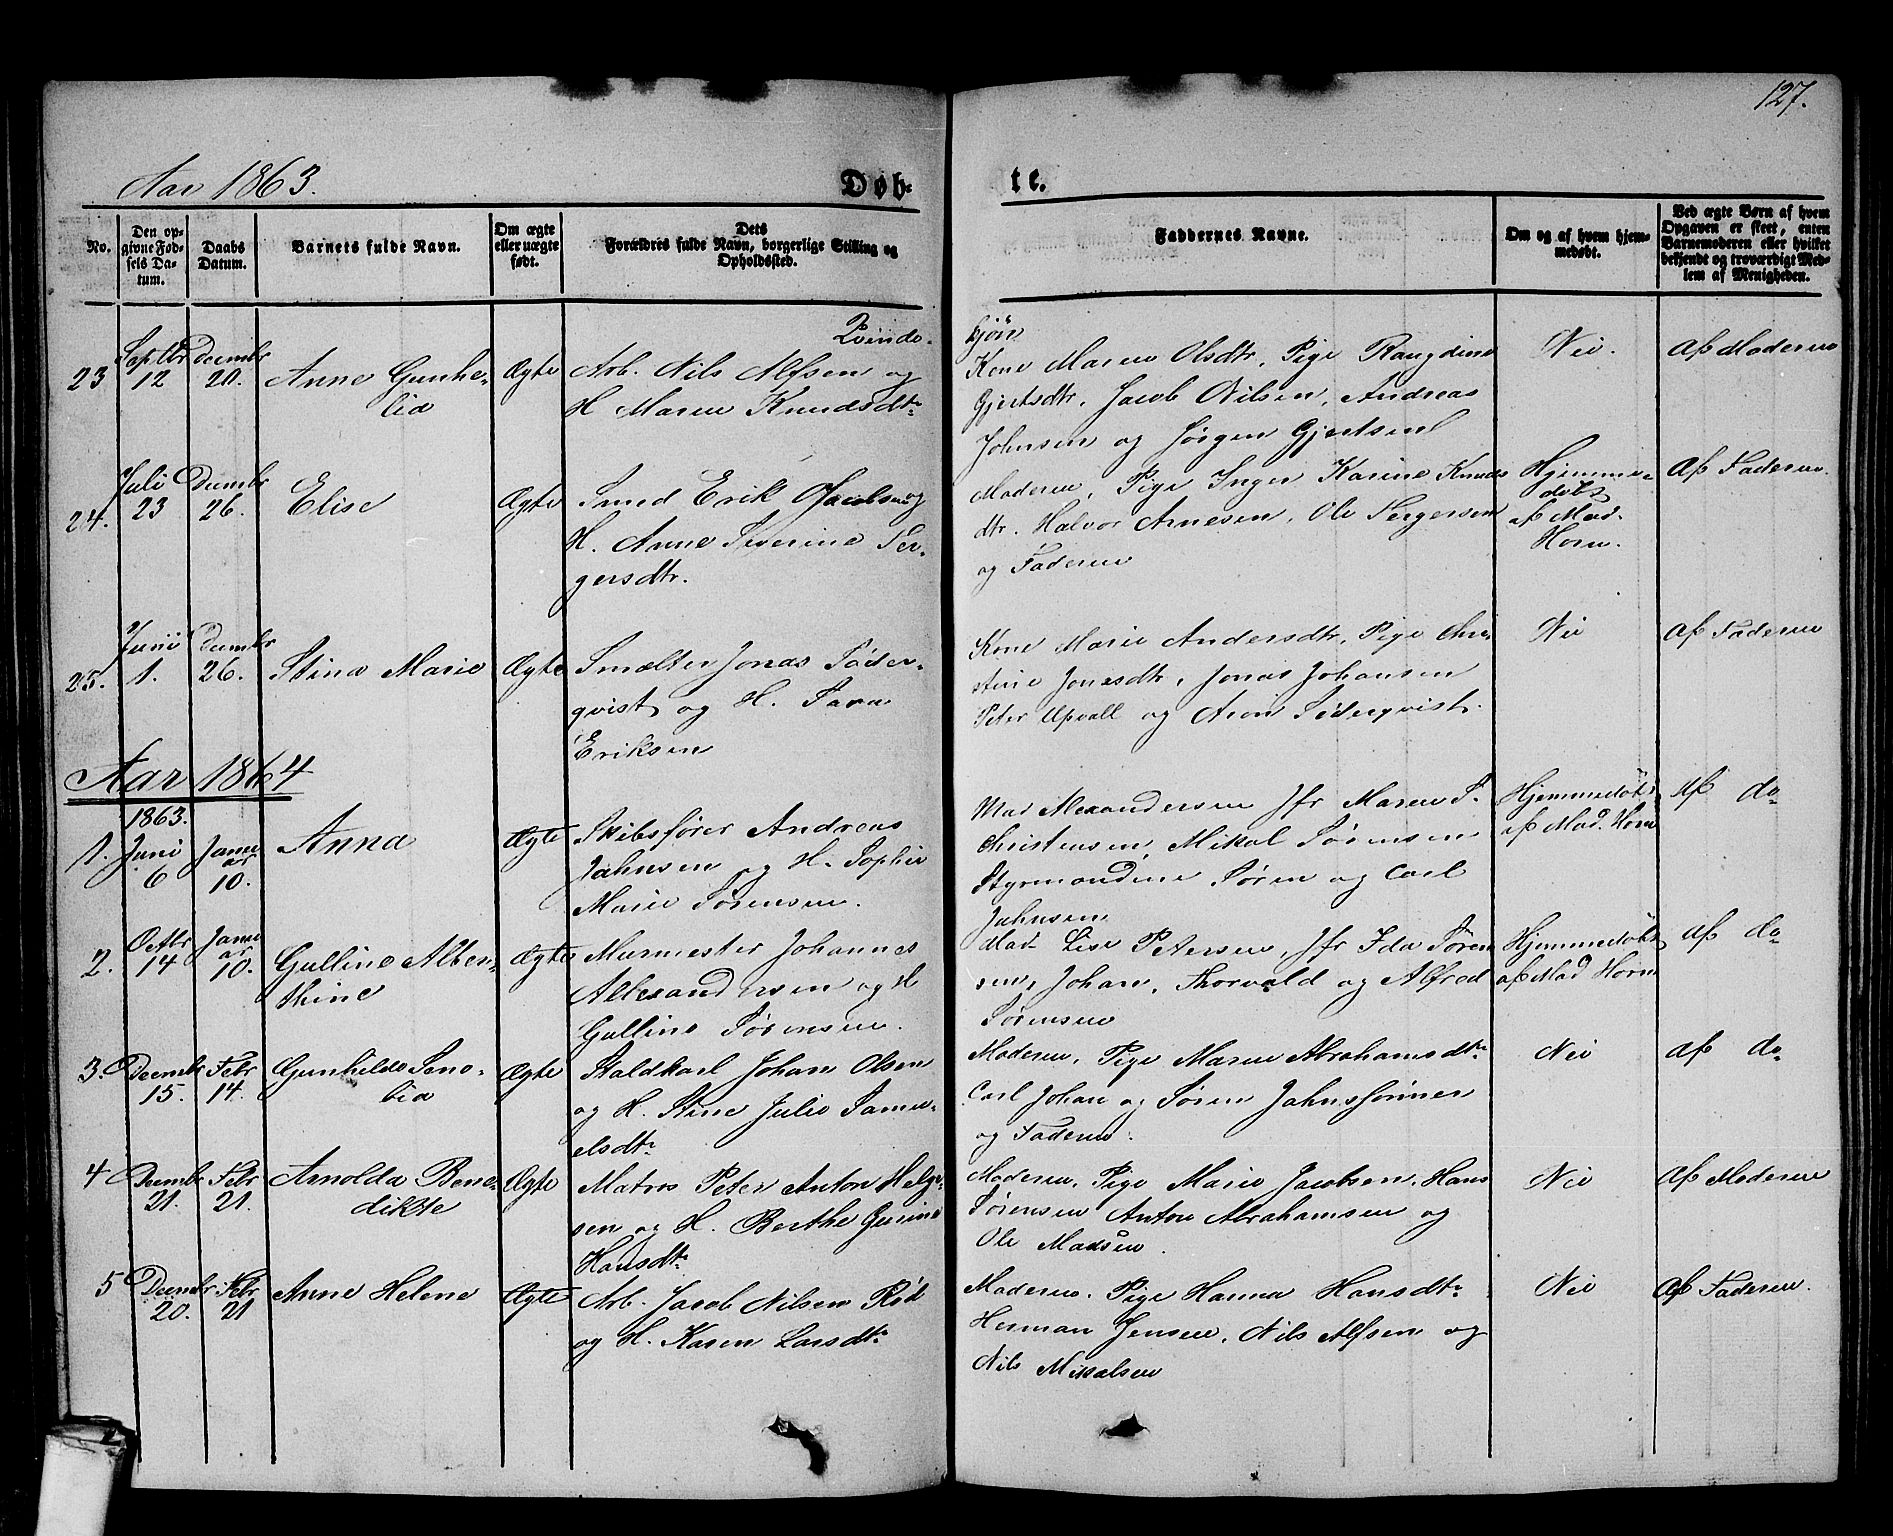 127.
Aar 1863.
Døb-
te.
No.
Den op-
givne Fød-
sels Da-
tum.
Daabs
Datum.
Barnets fulde Navn.
Om ægte
eller uægte
født.
Dets
Forældres fulde Navn, borgerlige Stilling og
Opholdssted.
Faddernes Navne.
Om og af hvem hjem-
medøbt.
Ved ægte Børn af hvem
Opgaven er skeet, enten
Barnemoderen eller hvilket
bekjendt og troværdigt Med-
lem af Menigheden.
Qvinde-
kjøn
23
Septbr
12
Decembr
20.
Anne Gunhe-
lia
Ægte
Arb. Nils Alfsen og
H Maren Knudsdtr
Kone Maren Olsdtr, Pige Rangdine
Gjertsdtr, Jacob Nilsen, Andreas
Johnsen og Jørgen Gjertsen
Nei.
af Moderen
24.
Juli
23
Decembr
26.
Elise
Ægte
Smed Erik Jacobsen og
H. Anne Severine Ser-
gersdtr.
Moderen, Pige Inger Karine Knuds
dtr. Halvor Arnesen, Ole Sergersen
og Faderen
Hjemme-
døbt
af Mad.
Horn.
af Faderen.
25.
Juni
1.
Decembr
26.
Stina Marie
Ægte
Smelter Jonas Söder-
qvist og H. Sara
Eriksen
Kone Marie Andersdtr, Pige Chri
stine Jonesdtr, Jonas Johansen
Peter Upvall og Aron Söderqvist.
Nei
af Faderen
Aar 1864
1.
1863.
Juni
6
Janu
ar
10.
Anna
Ægte
Skibsfører Andreas
Jahnsen og H. Sophie
Marie Sørensen.
Mad Alexandersen Jfr Maren S.
Christensen, Mikal Sørensen
Styrmændene Søren og Carl
Jahnsen
Hjemmedøbt
af Mad. Horn
af do-
2.
Octbr
14
Janu
ar
10.
Gulline Alber-
thine
Ægte
Murmester Johannes
Allexandersen og H
Gulline Sørensen.
Mad Lise Petersen, Jfr Ida Søren
sen, Johan, Thorvald og Alfred
Sørensen
Hjemmedøbt
af Mad Horn
af do-
3.
Decembr
15.
Febr
14.
Gunhilde Seno-
bia
Ægte
Staldkarl Johan Olsen
og H. Stine Julie Samu-
elsdtr
Moderen, Pige Maren Abrahamsdtr
Carl Johan og Søren Jahnsfønner
og Faderen.
Nei
af do-
4
Decembr
21.
Febr
21.
Arnolda Bene-
dikte
Ægte
Matros Peter Anton Helge-
sen og H. Berthe Gurine
Hansdtr
Moderen, Pige Marie Jacobsen, Hans
Sørensen Anton Abrahamsen og
Ole Madsen.
Nei
af Moderen
5
Decembr
20.
Febr
21
Anne Helene
Ægte
Arb. Jacob Nilsen Rød
og H. Karen Larsdtr
Moderen. Pige Hanna Hansdtr
Herman Jensen, Nils Alfsen og
Nils Mikalsen
Nei
af Faderen.